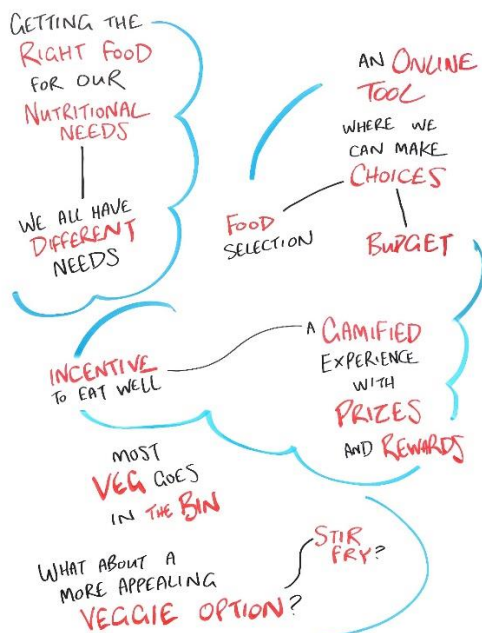 GETTING THE
RIGHT FOOD
FOR OUR
NUTRITIONAL
NEEDS
WE ALL HAVE
DIFFERENT
NEEDS
AN ONLINE
TOOL
WHERE WE
CAN MAKE
CHOICES
FOOD
SELECTION
BUDGET
INCENTIVE
TO EAT WELL
A GAMIFIED
EXPERIENCE
WITH
PRIZES
AND REWARDS
MOST
VEG GOES
IN THE BIN
WHAT ABOUT A
MORE APPEALING
VEGGIE OPTION?
STIR
FRY?